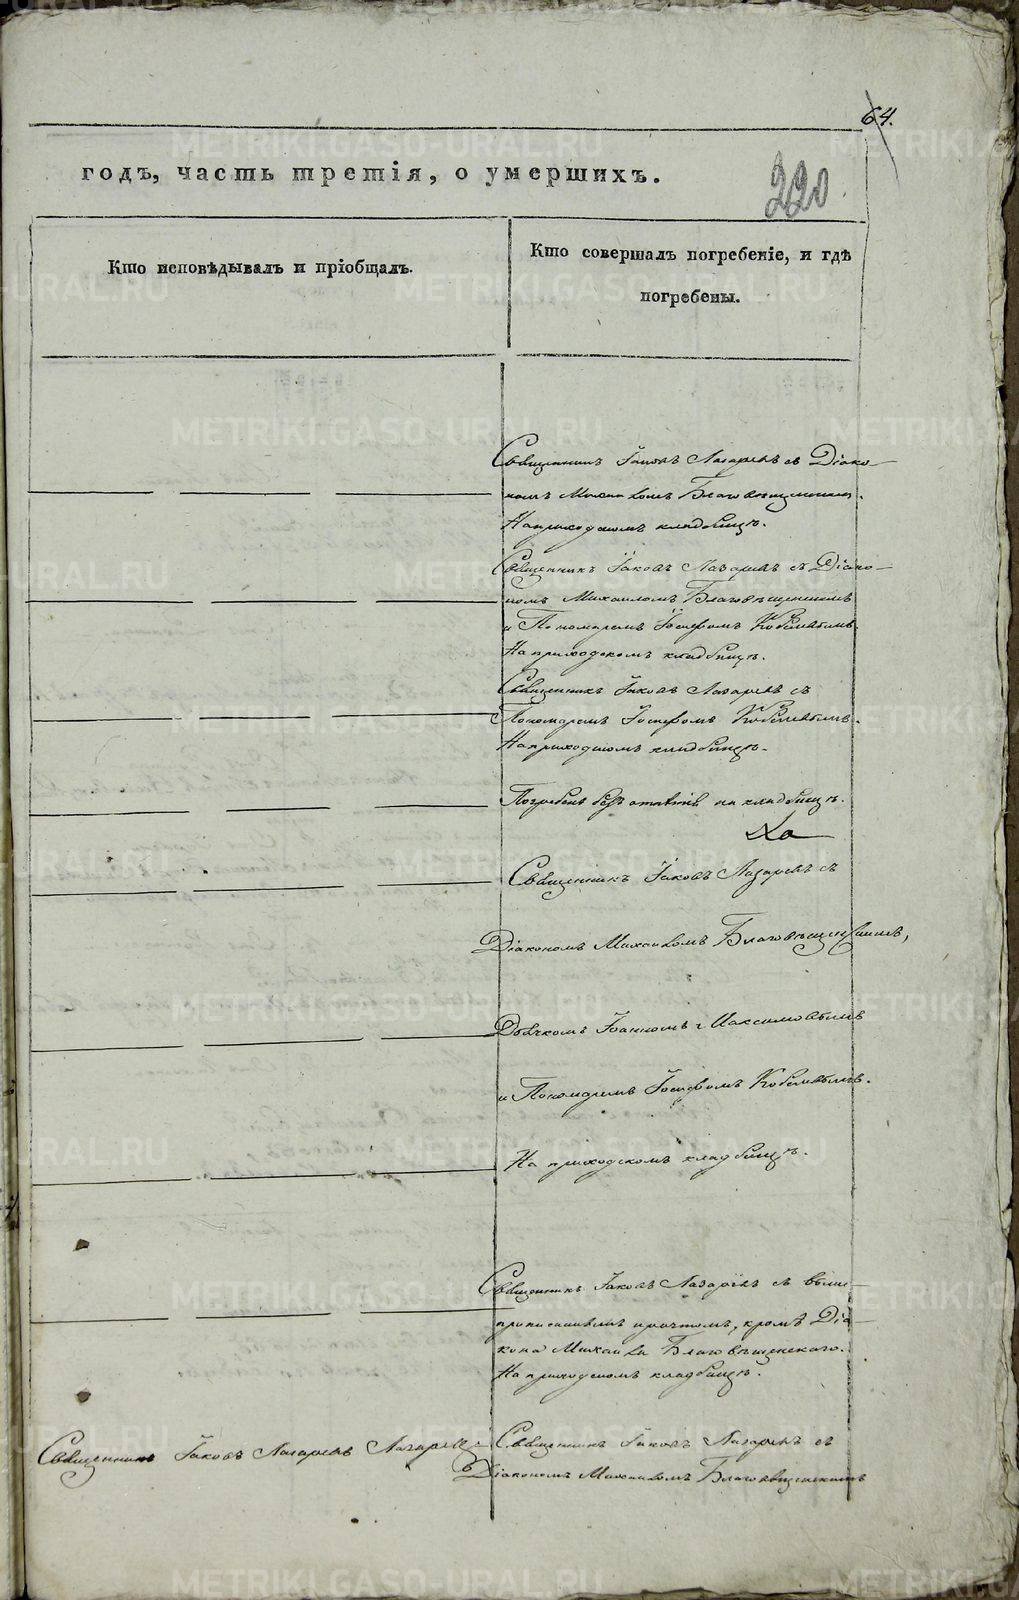 64.
годъ, часть третія, о умершихъ.
220
Кто исповѣдывалъ и пріобщалъ.
Кто совершалъ погребеніе, и гдѣ
погребены.
Священникъ Іаковъ Лазаревъ съ Діако-
номъ Михаиломъ Благовѣщенскимъ.
На приходскомъ кладбищѣ.
Священникъ Іаковъ Лазаревъ съ Діако-
номъ Михаиломъ Благовѣщенскимъ
и Пономаремъ Іосифомъ Кобелевымъ.
На приходскомъ кладбищѣ.
Священникъ Іаковъ Лазаревъ съ
Пономаремъ Іосифомъ Кобелевымъ.
На приходскомъ кладбищѣ.
Погребенъ безъ отпѣтія на кладбищѣ.
Священникъ Іаковъ Лазаревъ съ
Діакономъ Михаиломъ Благовѣщенскимъ,
Дьячкомъ Іоанномъ Максимовымъ
и Пономаремъ Іосифомъ Кобелевымъ.
На приходскомъ кладбищѣ.
Священникъ Іаковъ Лазаревъ съ выше-
прописаннымъ причтомъ, кромѣ Діа-
кона Михаила Благовѣщенскаго.
На приходскомъ кладбищѣ.
Священникъ Іаковъ Лазаревъ Лазаревъ
Священникъ Іаковъ Лазаревъ съ
Діакономъ Михаиломъ Благовѣщенскимъ
METRIKI.GASO-URAL.RU